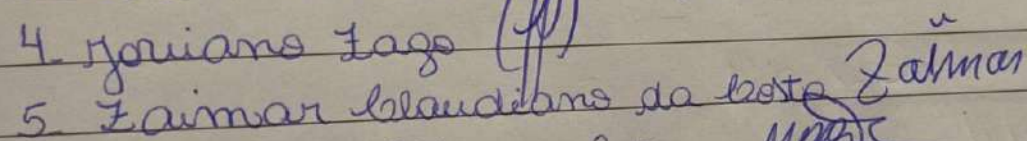 4. Joviano Lago
5. Zaimar Claudiano da Costa Zaimar